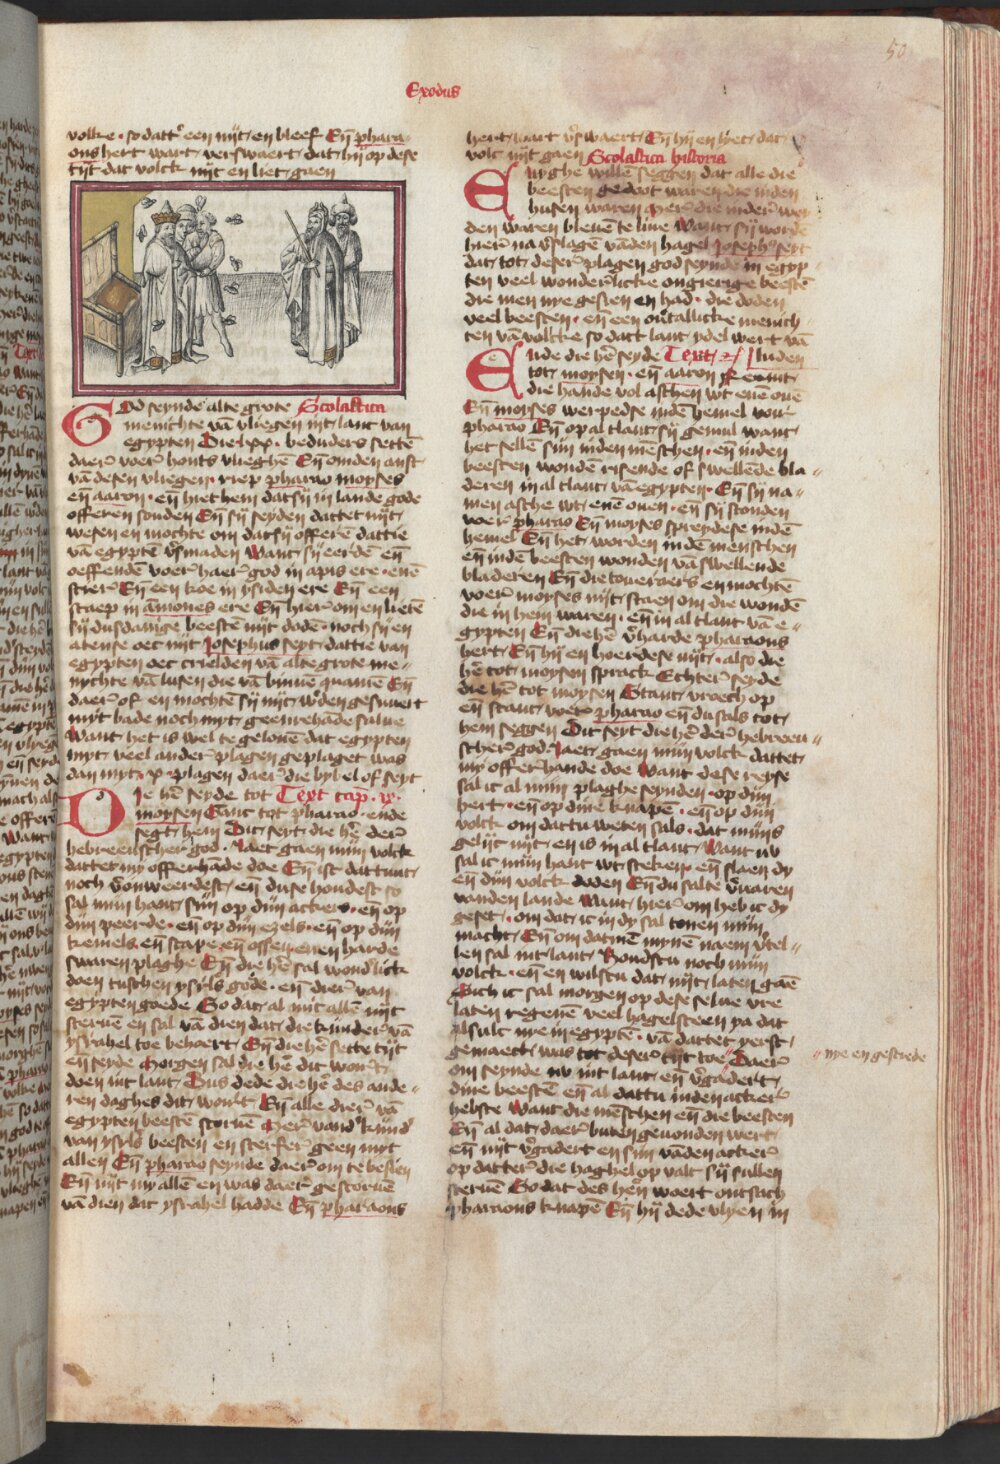 50
Exodus
volke · so datter een nijt en bleef Eñ phara
ons hert wart verswaert dat hij op dese
tijt dat volck nijt en liet gaen
God seynde alte grote Scolastica
menichte vā vliegen int lant van
egypten Die lxx · beduders setten
daer voer honts vlieghē Eñ om den anst
vā desen vliegen riep pharao moyses
eñ aaron · eñ hiet hem dat sij in lande gode
offeren souden Eñ sij seyden dattet nijt
wesen en mochte om dat sij offerē dattie
vā egyptē v̄smaden Want sij eerdē eñ
oeffendē voer haer god in apis ere · enē
stier Eñ een koe in ysiden ere Eñ een
scaep in āmones ere Eñ hier om en lietē
sij dusdanige beestē nijt dodē · noch sij en
atense oec nijt Josephus seyt dattie van
egypten oec crielden vā alte grote me
nychte vā lusen die vā binnē quamē Eñ
daer of en mochtē sij nijt wdē gesuuert
myt bade noch myt geenrehāde salue
Want het is wel te gelouē dat egypten
myt veel ander plagen geplaget was
dan myt · x · plagen daer die bybel of seyt
Die hē seyde tot Text cap · ix ·
moysen Ganc tot pharao · ende
segt hem Dit seyt die hē der
hebreenscher god · Laet gaen mijn volck
dattet my offerhāde doe Eñ ist dattuut
noch v̄onweerdest eñ duse houdest so
sal mijn hant sijn op dijn ackers · eñ op
dijn peerde · eñ op dijn ezels · eñ op dijn
kemels eñ scape eñ ossen enen harde
swaren plaghe Eñ die hē sal wondlick
doen tusschen ysrls gode · eñ dier van
egypten goede So dat al mit allē nijt
steruē en sal vā dien dat die kinder vā
ysrahel toe behaert Eñ die hē sette tijt
eñ seyde Morgen sal die hē dit wort
doen int lant Dus dede die hē des ande
ren daghes dit wort Eñ alle dier vā
egypten beestē storuē Mer vand kind
van ysrls beesten en sterfer geen myt
allen Eñ pharao seynde daer om te besien
Eñ nijt my allē en was daer gestoruē
vā dien dat ysrahel hadde Eñ pharaons
hert wart v̄swaert Eñ hij en liet dat
volc nijt gaen Scolastica historia
Enyghe willē seggen dat alle die
beesten gedoot waren die inden
husen waren Mer die inder
den waren bleuē te liue Want sij worde
hier na v̄slagē vādē hagel Josephus seyt
dat tot deser plagen god seynde in egyp
ten veel wonderlicke ongierige beestē
die men nye gesien en had · die doden
veel beesten · eñ een ontallicke menich
ten vā volcke so dat lant ydel wert vā
Ende die hē seyde Text luden
tot moysen · eñ aaron Neemt
die hande vol aschen wt ene oue
Eñ moyses werpedse indē hemel voir
pharao Eñ op al tlant sij gemul want
het sellē sijn inden mēschen · eñ inden
beesten wondē risende of swellēde bla
deren in al tlant vā egypten · Eñ sij na
men asche wt enē ouen · eñ sij stonden
voer pharao Eñ moyses spreydese indē
hemel Eñ het worden indē menschen
eñ indē beesten wonden vā swellende
bladeren Eñ die toeuenaers en mochtē
voer moyses nijt staen om die wondē
die in hem waren · eñ in al tlant vā e
gypten Eñ die hē v̄harde pharaons
hert Eñ hij en hoerdese nijt · also die
hē tot moysen sprack Echter seyde
die hē tot moysen Stant vroech op
eñ stant voer pharao eñ du sals tot
hem seggen Dit seyt die hē der hebreen
scher god Laet gaen mijn volck dattet
my offerhande doe Want dese reyse
sal ic al mijn plaghe seynden · op dijn
hert · eñ op dine knapē · eñ op dijn
volck om dattu weten sals · dat mijns
gelijc nijt en is in al tlant Want nv
sal ic mijn hant wt steken · eñ slaen dy
eñ dijn volck doden Eñ du salte v̄uaren
vanden lande Want hier om heb ic dy
geset · om dat ic in dy sal tonen mijn
macht Eñ om datmē mynē naem v̄tel
len sal int lant Houdstu noch mijn
volck · eñ en wilstu dat nijt laten gaē
Sich ic sal morgen op dese selue vre
laten regenē veel hagelsteen ya dat
alsulc nye in egyptē · vā dattet yerst
gemaect was tot deser tijt toe Daer
om seynde nv int lant eñ v̄gadert
dine beestē eñ al dattu inden acker
hebste Want die mēschen eñ die beesten
Eñ al dat daer buten geuonden wert
eñ nijt v̄gadert en sijn vāden acker
op datter die haghel op valt sij sullen
steruē So dat des hen woert ontsach
pharaons knapē Eñ hij dede vlyen in
nye en gesciede